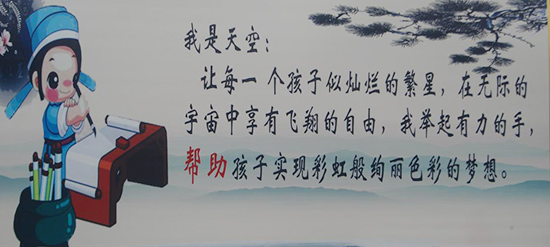 我是天空：
让每一个孩子似灿烂的繁星，在无际的
宇宙中享有飞翔的自由，我举起有力的手，
帮助孩子实现彩虹般绚丽色彩的梦想。